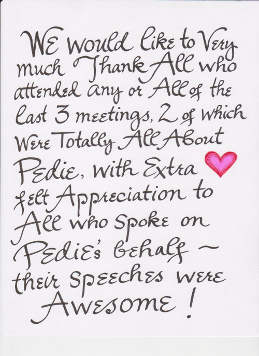 WE would like to Very
much Thank All who
attended any or All of the
last 3 meetings, 2 of which
Were Totally All About
Pedie, with Extra
felt Appreciation to
All who spoke on
Pedie's behalf ~
their speeches were
Awesome!